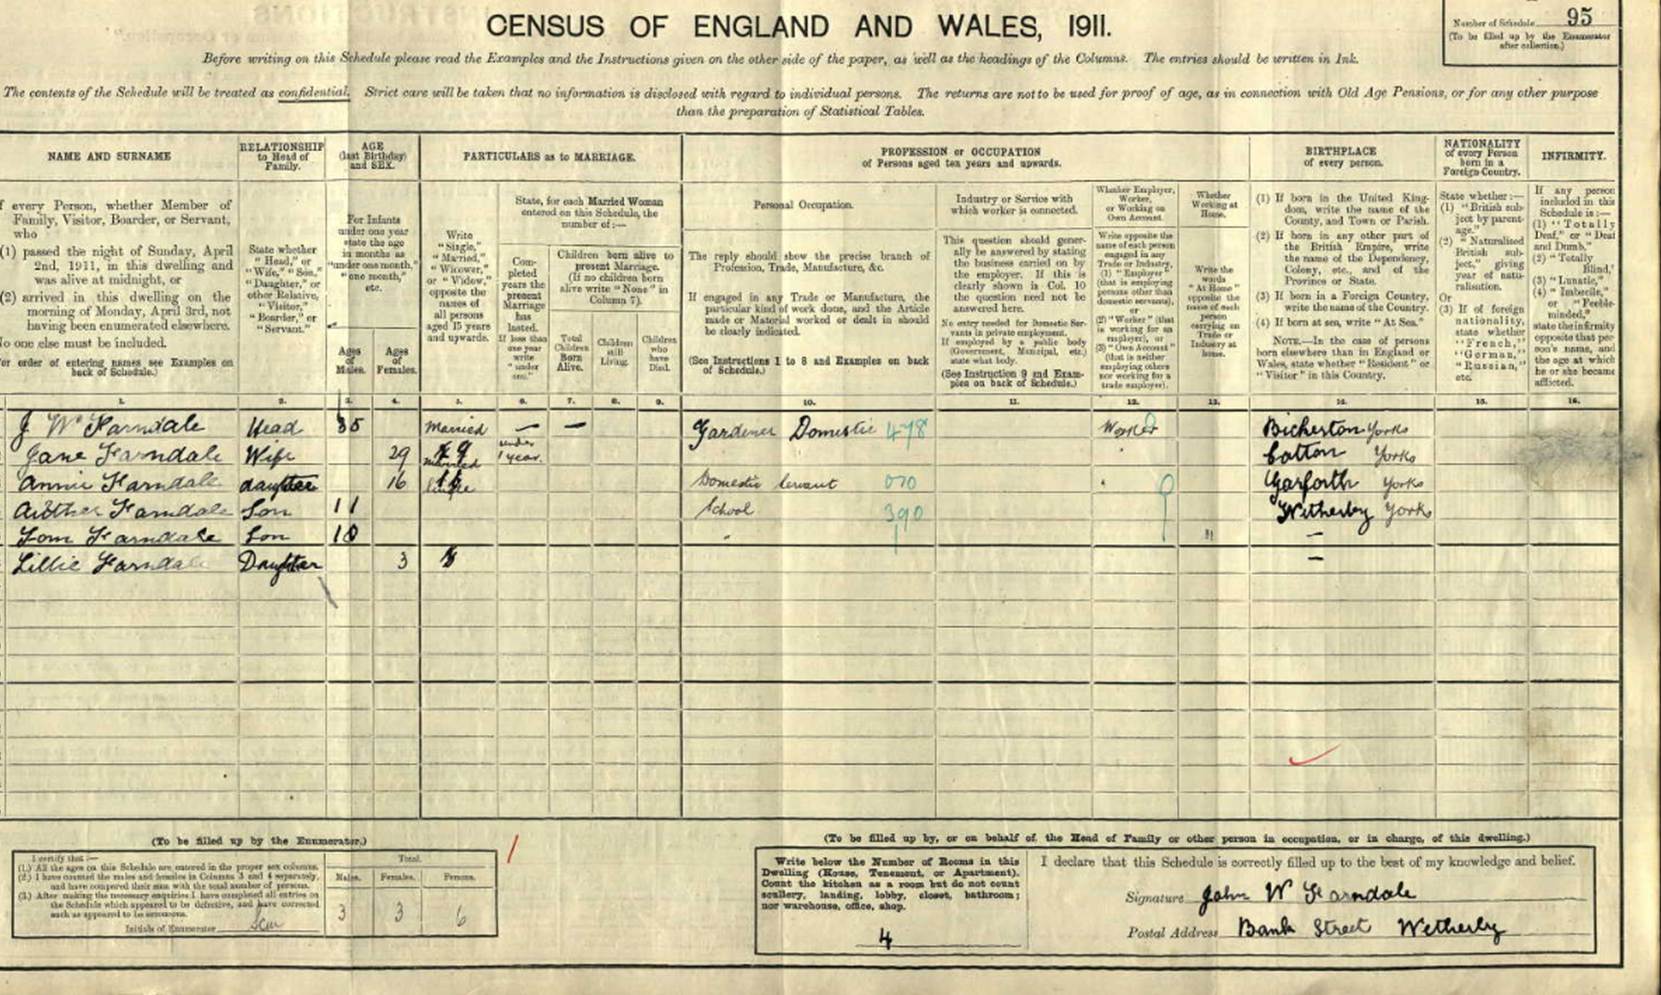 CENSUS OF ENGLAND AND WALES, 1911.
Number of Schedule 95
(To be filled up by the Enumerator
after collection.)
Before writing on this Schedule please read the Examples and the Instructions given on the other side of the paper, as well as the headings of the Columns. The entries should be written in Ink.
The contents of the Schedule will be treated as confidential. Strict care will be taken that no information is disclosed with regard to individual persons. The returns are not to be used for proof of age, as in connection with Old Age Pensions, or for any other purpose
than the preparation of Statistical Tables.
NAME AND SURNAME
every Person, whether Member of
Family, Visitor, Boarder, or Servant,
who
(1) passed the night of Sunday, April
2nd, 1911, in this dwelling and
was alive at midnight, or
(2) arrived in this dwelling on the
morning of Monday, April 3rd, not
having been enumerated elsewhere.
No one else must be included.
order of entering names see Examples on
back of Schedule.)
RELATIONSHIP
to Head of
Family.
State whether
"Head," or
"Wife," "Son,"
"Daughter," or
other Relative,
"Visitor,"
"Boarder," or
"Servant."
AGE
(last Birthday)
and SEX.
For Infants
under one year
state the age
in months as
"under one month,"
"one month,"
etc.
Ages
of
Males.
Ages
of
Females.
PARTICULARS as to MARRIAGE.
Write
"Single,"
"Married,"
"Widower,"
or "Widow,"
opposite the
names of
all persons
aged 15 years
and upwards.
State, for each Married Woman
entered on this Schedule, the
number of:—
Completed
years the
present
Marriage
has
lasted.
If less than
one year
write
"under
one."
Children born alive to
present Marriage.
(If no children born
alive write "None" in
Column 7).
Total
Children
Born
Alive.
Children
still
Living.
Children
who
have
Died.
PROFESSION or OCCUPATION
of Persons aged ten years and upwards.
Personal Occupation.
The reply should show the precise branch of
Profession, Trade, Manufacture, &c.
If engaged in any Trade or Manufacture, the
particular kind of work done, and the Article
made or Material worked or dealt in should
be clearly indicated.
(See Instructions 1 to 8 and Examples on back
of Schedule.)
Industry or Service with
which worker is connected.
This question should gener-
ally be answered by stating
the business carried on by
the employer. If this is
clearly shown in Col. 10
the question need not be
answered here.
No entry needed for Domestic Ser-
vants in private employment.
If employed by a public body
(Government, Municipal, etc.)
state what body.
(See Instruction 9 and Exam-
ples on back of Schedule.)
Whether Employer,
Worker,
or Working on
Own Account.
Write opposite the
name of each person
engaged in any
Trade or Industry,
(1) "Employer"
(that is employing
persons other than
domestic servants),
or
(2) "Worker" (that
is working for an
employer), or
(3) "Own Account"
(that is neither
employing others
nor working for a
trade employer).
Whether
Working at
Home.
Write the
words
"At Home"
opposite the
name of each
person
carrying on
Trade or
Industry at
home.
BIRTHPLACE
of every person.
(1) If born in the United King-
dom, write the name of the
County, and Town or Parish.
(2) If born in any other part of
the British Empire, write
the name of the Dependency,
Colony, etc., and of the
Province or State.
(3) If born in a Foreign Country,
write the name of the Country.
(4) If born at sea, write "At Sea."
NOTE.—In the case of persons
born elsewhere than in England or
Wales, state whether "Resident" or
"Visitor" in this Country.
NATIONALITY
of every Person
born in a
Foreign Country.
State whether:—
(1) "British sub-
ject by parent-
age."
(2) "Naturalised
British sub-
ject," giving
year of natu-
ralisation.
Or
(3) If of foreign
nationality,
state whether
"French,"
"German,"
"Russian,"
etc.
INFIRMITY.
If any person
included in this
Schedule is:—
(1) "Totally
Deaf," or "Deaf
and Dumb,"
(2) "Totally
Blind,"
(3) "Lunatic,"
(4) "Imbecile,"
or "Feeble-
minded,"
state the infirmity
opposite that per-
son's name, and
the age at which
he or she became
afflicted.
1. 2. 3. 4. 5. 6. 7. 8. 9. 10. 11. 12. 13. 14. 15. 16.
J W Farndale Head 35 Married — — Gardener Domestic 478 Worker Bickerton Yorks
Jane Farndale Wife 29 Married under 1 year. Cotton Yorks
Annie Farndale daughter 16 Single Domestic Servant 070 Garforth Yorks
Arther Farndale Son 11 School 390 Wetherby Yorks
Tom Farndale Son 10 " —
Lillie Farndale Daughter 3 —
(To be filled up by the Enumerator.)
I certify that:—
(1.) All the ages on this Schedule are entered in the proper sex columns.
(2.) I have counted the males and females in Columns 3 and 4 separately,
and have compared their sum with the total number of persons.
(3.) After making the necessary enquiries I have completed all entries on
the Schedule which appeared to be defective, and have corrected
such as appeared to be erroneous.
Initials of Enumerator
Total.
Males. Females. Persons.
3 3 6
(To be filled up by, or on behalf of, the Head of Family or other person in occupation, or in charge, of this dwelling.)
Write below the Number of Rooms in this
Dwelling (House, Tenement, or Apartment).
Count the kitchen as a room but do not count
scullery, landing, lobby, closet, bathroom;
nor warehouse, office, shop.
4
I declare that this Schedule is correctly filled up to the best of my knowledge and belief.
Signature John W Farndale
Postal Address Bank Street Wetherby